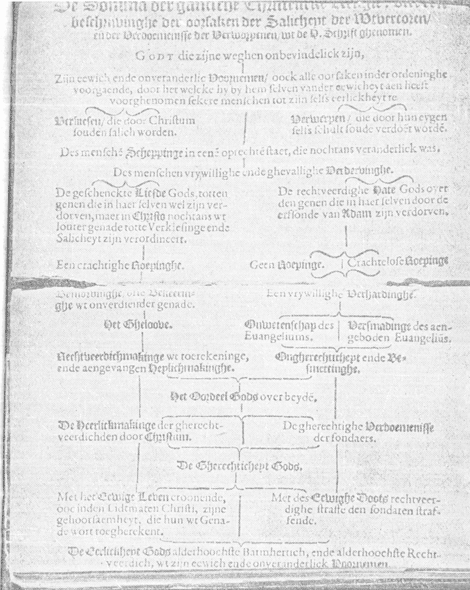 De Somma der gantsche Christelicke
beschrijvinghe der oorsaken der Salicheyt der Wtvercoren/
ende der Verdoemenisse der Verworpenen, wt de H. Schrift ghenomen.
GODT die zijne weghen onbevindelick zijn,
Zijn eewich ende onveranderlic Voornemen/ oock alle oorsaken inder ordeninghe
voorgaende, door het welcke hy by hem selven vander eewicheyt aen heeft
voorghenomen sekere menschen tot zijn selfs eerlickheyt te
Verkiesen/ die door Christum
souden salich worden.
Verwerpen/ die door hun eygen
selfs schult soude verdoet wordē.
Des menschē Scheppinge in eenē oprechtē staet, die nochtans veranderlick was.
Des menschen vrywillighe ende ghevallighe Verdervinghe.
De geschenckte Liefde Gods, totten
genen die in haer selven wel zijn ver-
dorven, maer in Christo nochtans wt
louter genade totte Verkiesinge ende
Salicheyt zijn verordineert.
De rechtveerdighe Hate Gods over
den genen die in haer selven door de
erfsonde van Adam zijn verdorven.
Een crachtighe Roepinghe.
Geen Roepinge.
Crachtelose Roepinge
ghe wt onverdiender genade.
Een vrywillighe Verhardinghe.
Het Gheloove.
Onwetenschap des
Euangeliums.
Versmadinge des aen-
geboden Euangeliūs.
Rechtveerdichmakinge wt toerekeninge,
ende aengevangen Heylichmakinghe.
Ongherechticheyt ende Be-
smettinghe.
Het Oordeel Gods over beydē.
De Heerlickmakinge der gherecht-
veerdichden door Christum.
De gherechtighe Verdoemenisse
der sondaers.
De Gherechticheyt Gods,
Met het Eewige Leven croonende,
ooc inden Lidtmaten Christi, zijne
gehoorsaemheyt, die hun wt Gena-
de wort toegherekent.
Met des Eewighe Doots rechtveer-
dighe straffe den sondaren straf-
fende.
De Eerlickheyt Gods alderhoochste Barmhertich, ende alderhoochste Recht-
veerdich, wt zijn eewich ende onveranderlick Voornemen.